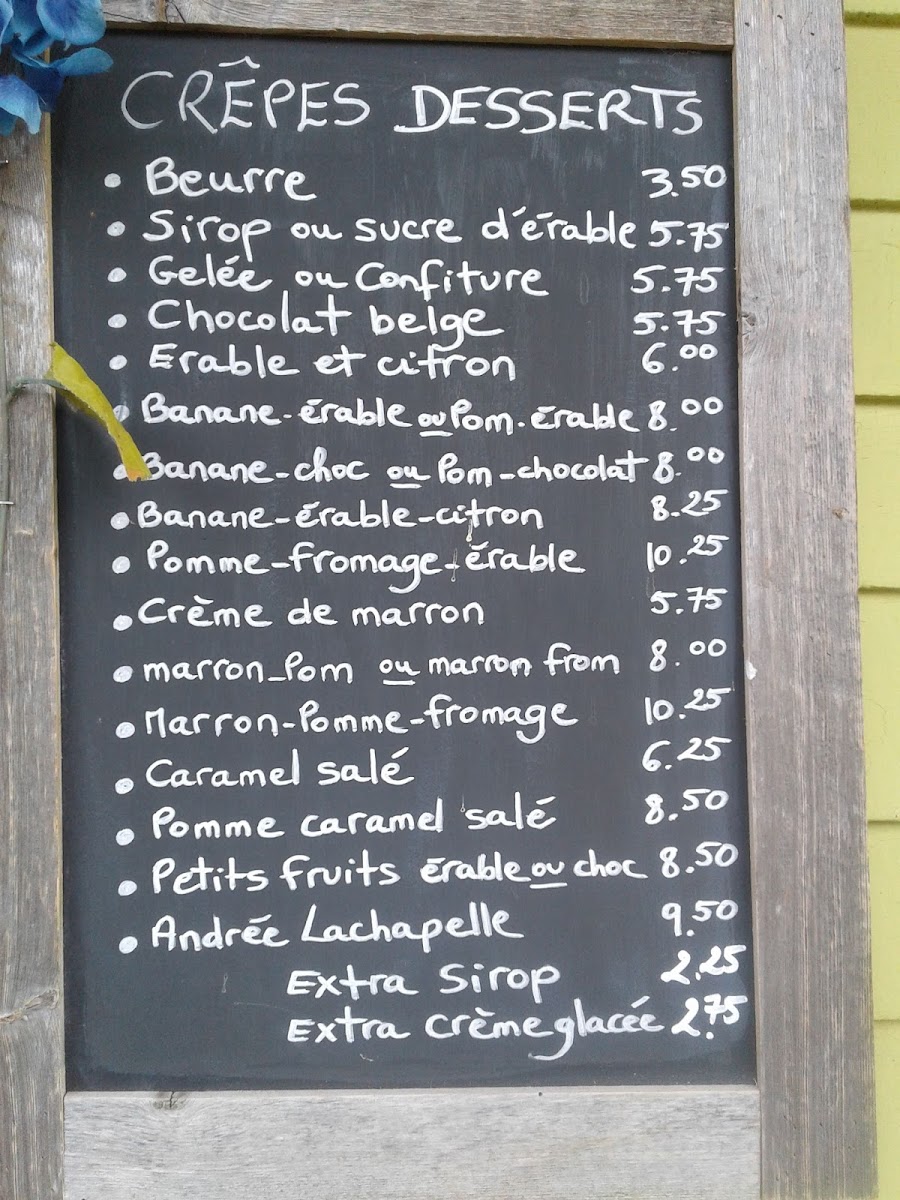 CRÊPES DESSERTS
• Beurre 3.50
• Sirop ou sucre d'érable 5.75
• Gelée ou Confiture 5.75
• Chocolat belge 5.75
• Erable et citron 6.00
• Banane-érable ou Pom.érable 8.00
• Banane-choc ou Pom-chocolat 8.00
• Banane-érable-citron 8.25
• Pomme-fromage-érable 10.25
• Crème de marron 5.75
• marron-Pom ou marron from 8.00
• Marron-Pomme-fromage 10.25
• Caramel salé 6.25
• Pomme caramel salé 8.50
• Petits fruits érable ou choc 8.50
• Andrée Lachapelle 9.50
Extra Sirop 2.25
Extra crème glacée 2.75